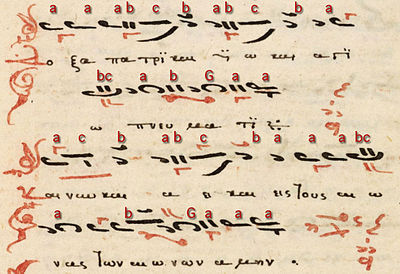 a a ab c b ab c b a
ο ξα πα τρι και ϋ ω και α γι
bc a b G a a
ω πνευ μα τι
a c b ab c b a a a bc
αι νυν και α ει και εις τους αι ω
a b G a a a
νας των αι ω νων α μην .